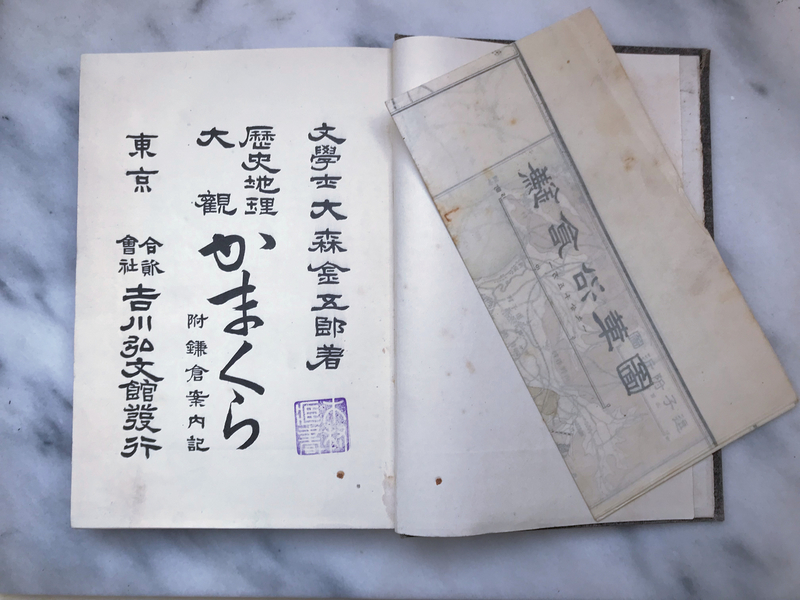 文學士大森金五郎著
歷史地理
大觀
かまくら
附鎌倉案内記
東京
合資
會社
吉川弘文館發行